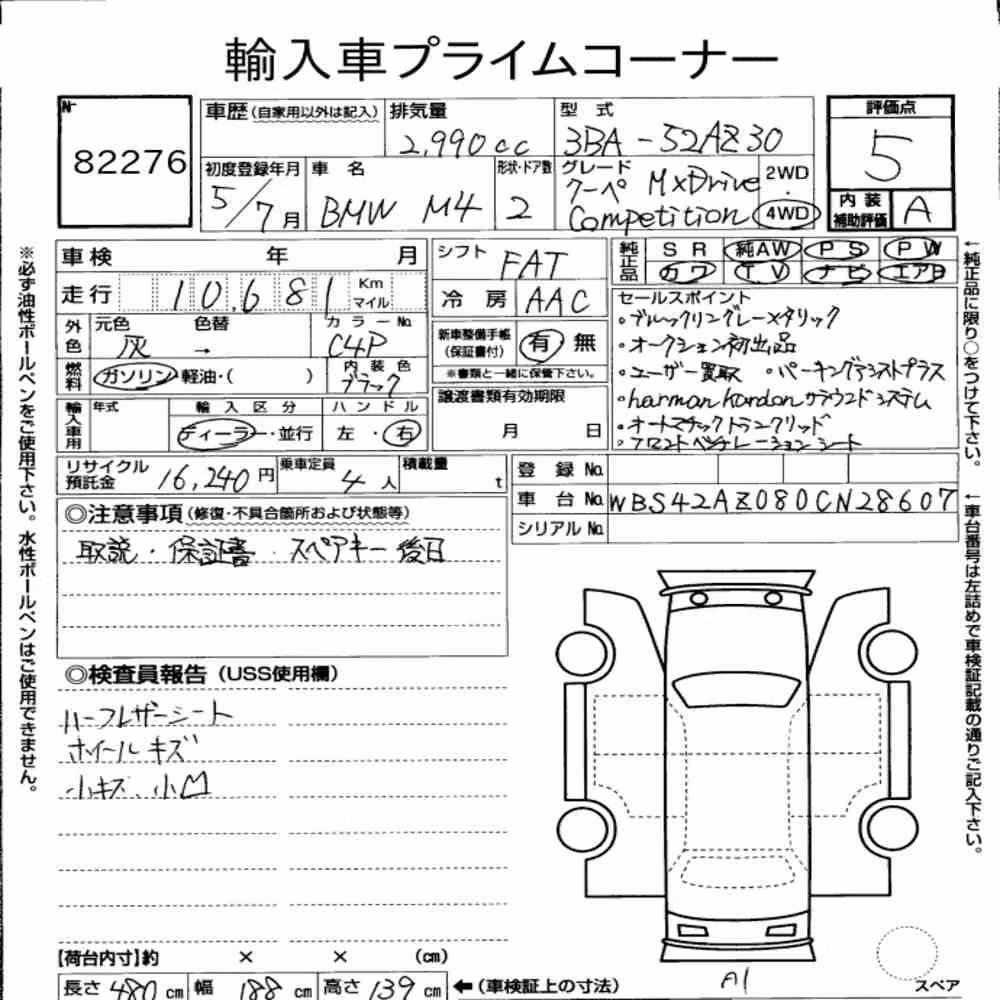 輸入車プライムコーナー
No. 82276
車歴(自家用以外は記入) 排気量 2,990cc 型式 3BA-52AZ30 評価点 5
初度登録年月 5/7月 車名 BMW M4 形状・ドア数 2 グレード クーペ MxDrive Competition 2WD・4WD 内装補助評価 A
※必ず油性ボールペンをご使用下さい。水性ボールペンはご使用できません。
車検 年 月 シフト FAT 純正品 SR 純AW PS PW
走行 10,681 Km マイル 冷房 AAC カワ TV ナビ エアB
外色 元色 灰 色替 → カラーNo. C4P
新車整備手帳(保証書付) 有 無
※書類と一緒に保管下さい。
燃料 ガソリン・軽油・( ) 内装色 ブラック
譲渡書類有効期限 月 日
輸入車用 年式 輸入区分 ディーラー・並行 ハンドル 左・右
セールスポイント
・ブルックリングレーメタリック
・オークション初出品
・ユーザー買取 ・パーキングアシストプラス
・harman kardonサラウンドシステム
・オートマチックトランクリッド
・フロントベンチレーションシート
←純正品に限り○をつけて下さい。
リサイクル預託金 16,240円 乗車定員 4人 積載量 t
登録No.
車台No. WBS42AZ080CN28607
シリアルNo.
←車台番号は左詰めで車検証記載の通りご記入下さい。
◎注意事項(修復・不具合箇所および状態等)
取説・保証書・スペアキー後日
◎検査員報告(USS使用欄)
ハーフレザーシート
ホイールキズ
小キズ、小凹
【荷台内寸】約 × × (cm)
長さ 480cm 幅 188cm 高さ 139cm ←(車検証上の寸法)
A1
スペア